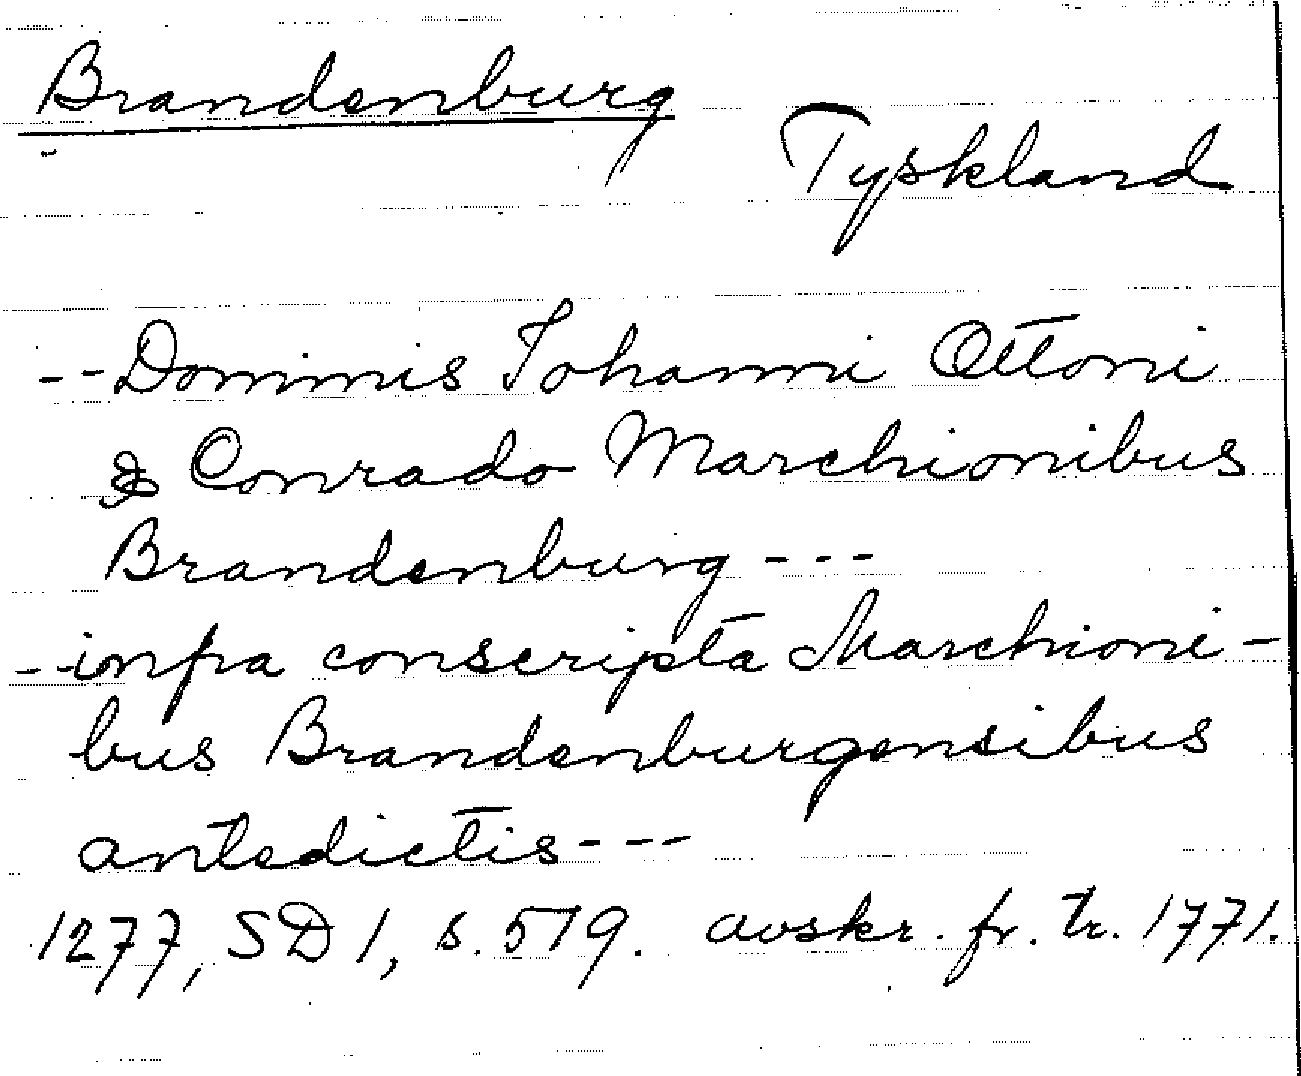 Brandenburg
Tyskland
-- Dominis Johanni Ottoni
& Conrado Marchionibus
Brandenburg ---
-- infra conscripta Marchioni-
bus Brandenburgensibus
antedictis ---
1277, SD 1, s. 519. avskr. fr. tr. 1771.